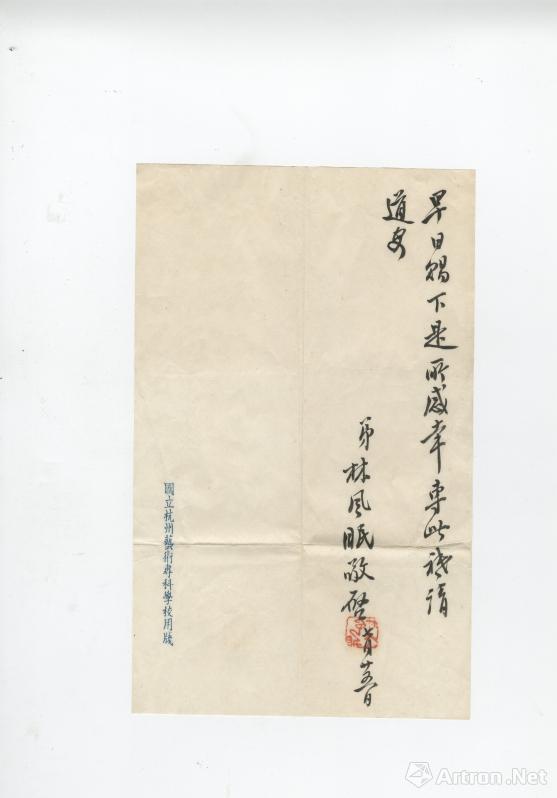 早日賜下是所感幸專此祗請
道安
弟林風眠敬啓 月廿五日
國立杭州藝術專科學校用牋
Artron.Net